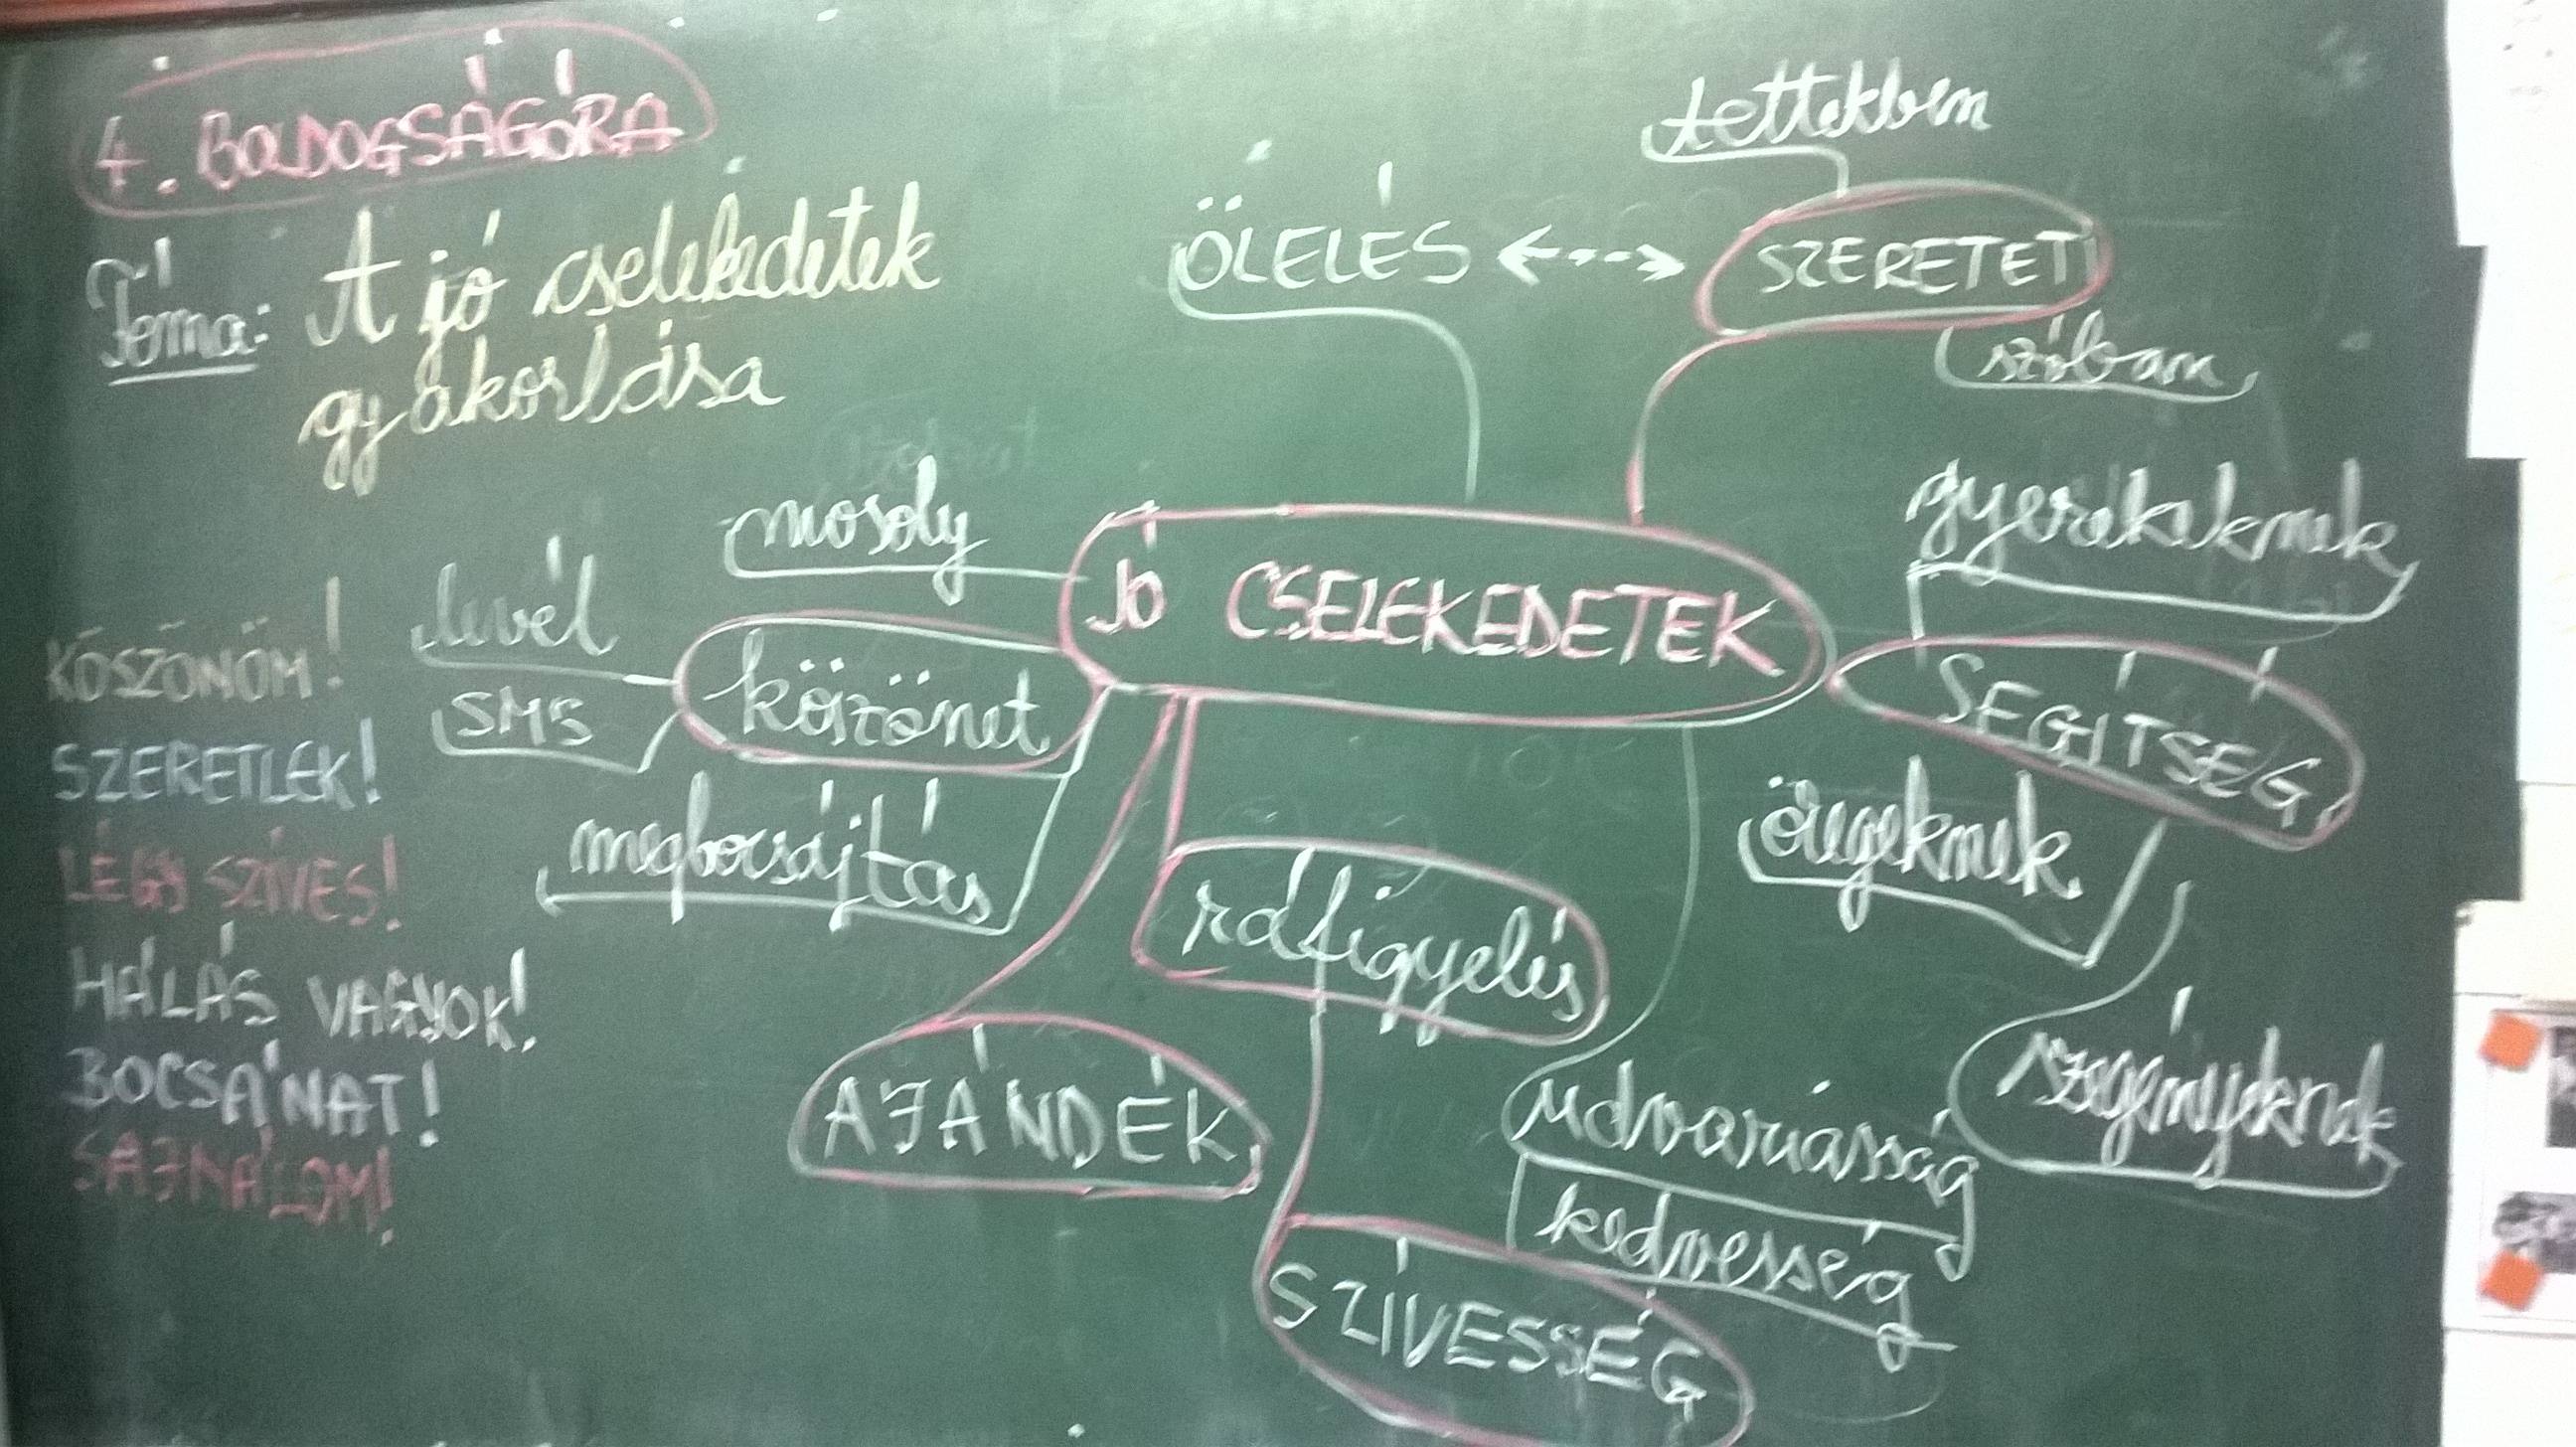 4. BOLDOGSÁGÓRA
Téma: A jó cselekedetek
gyakorlása
tettekben
ÖLELÉS
SZERETET
szóban
mosoly
JÓ CSELEKEDETEK
gyerekeknek
levél
SMS
köszönet
SEGÍTSÉG
megbocsájtás
öregeknek
ráfigyelés
szegényeknek
AJÁNDÉK
udvariasság
kedvesség
SZÍVESSÉG
KÖSZÖNÖM!
SZERETLEK!
LÉGY SZÍVES!
HÁLÁS VAGYOK!
BOCSÁNAT!
SAJNÁLOM!